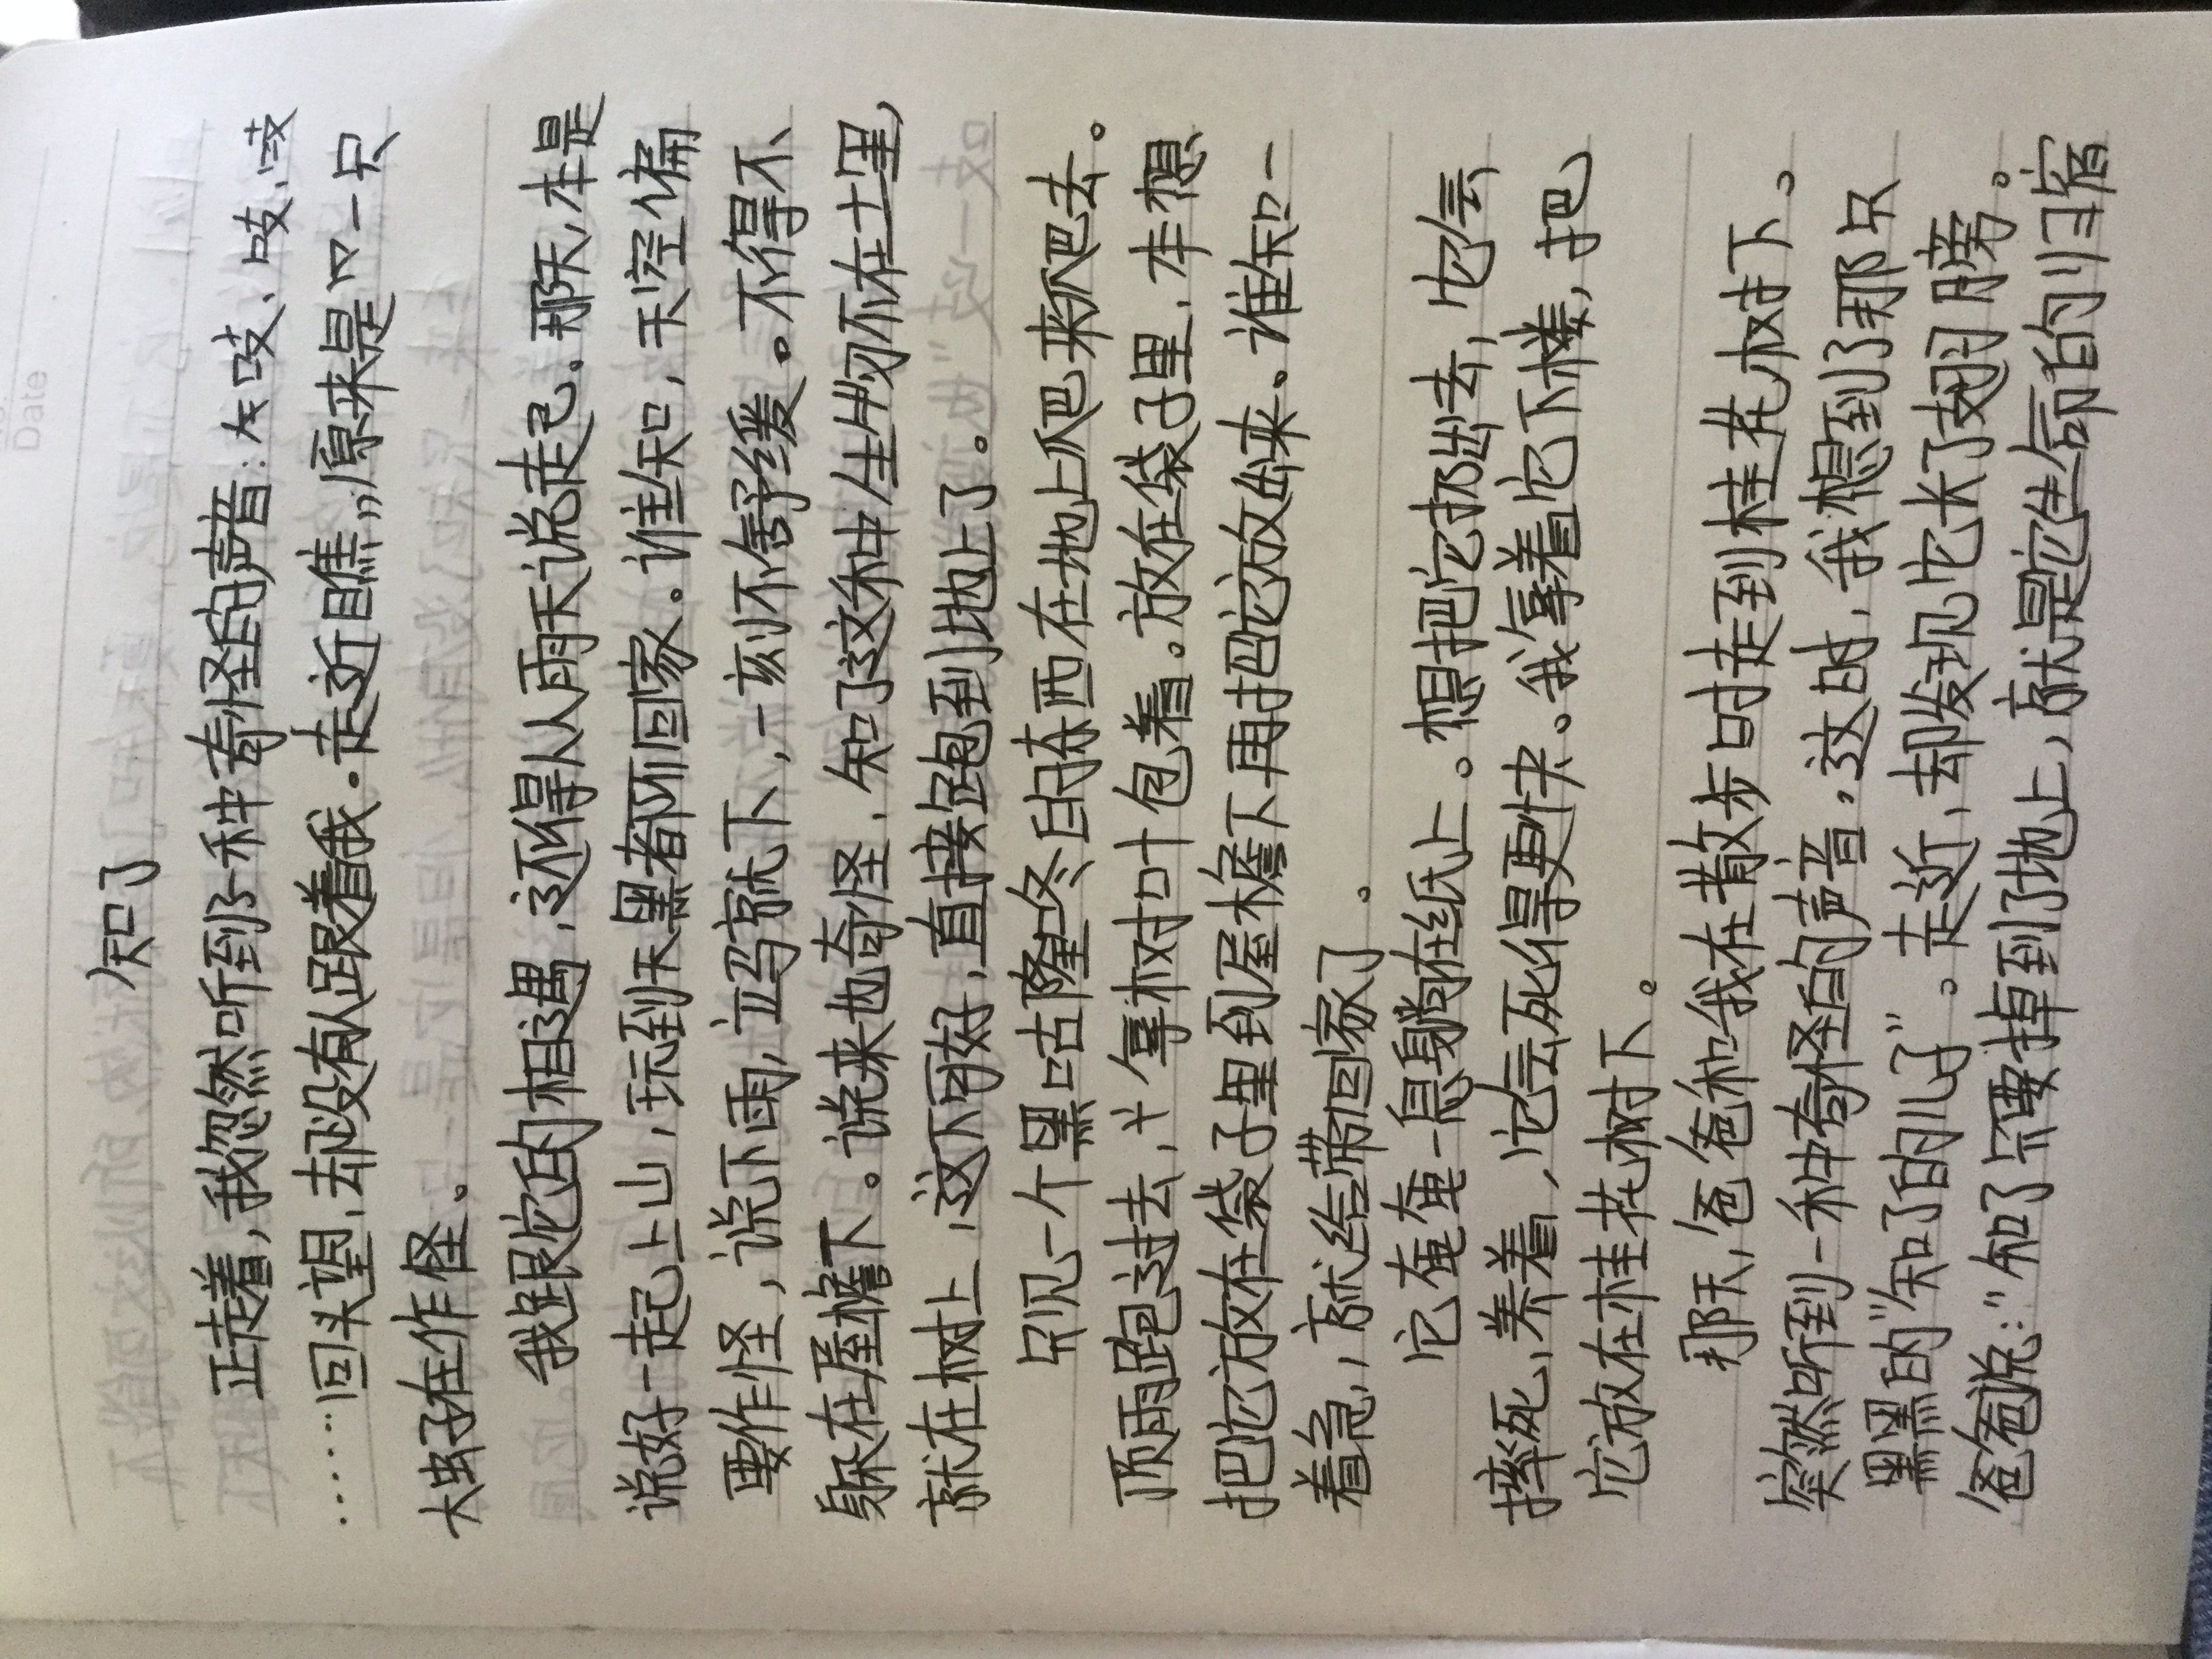 Date
知了
正走着,我忽然听到了种奇怪的声音:“吱、吱、吱
……”回头望,却没有人跟着我。走近瞧,原来是一只
大虫子在作怪。
我跟它的相遇,还得从人雨天说走已.那天,本是
说好一起上山,玩到天黑都不回家。谁知,天空偏
要作怪,说下雨,立马就下,一刻不舒缓。不得不
躲在屋檐下。说来也奇怪,知了这种生物不在土里,
就在树上,这下可好,直接跑到地上了。
只见一个黑咕隆冬的东西在地上爬来爬去。
顶雨跑过去,拿树叶包着。放在袋子里,本想
把它放在袋子里到屋檐下再把它放出来。谁知一
着急,就给带回家了。
它奄奄一息躺在纸上。想把它扔出去,它会
摔死,养着,它会死得更快。我拿着它下楼,把
它放在桂花树下。
那天,爸爸和我在散步时走到桂花树下。
突然听到一种奇怪的声音,这时,我想到了那只
黑黑的“知了的儿子”。走近,却发现它长了翅膀。
爸爸说:“知了只要掉到了地上,就是它生命的归宿